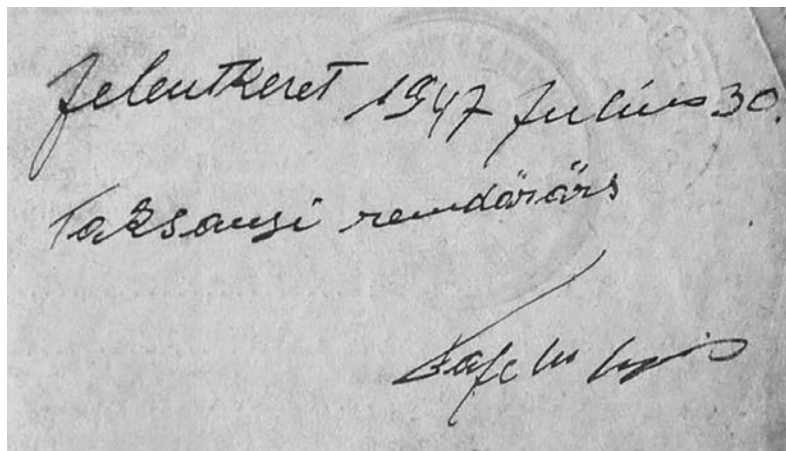 Jelentkeret 1947 Julius 30.
Taksonyi rendőrörs